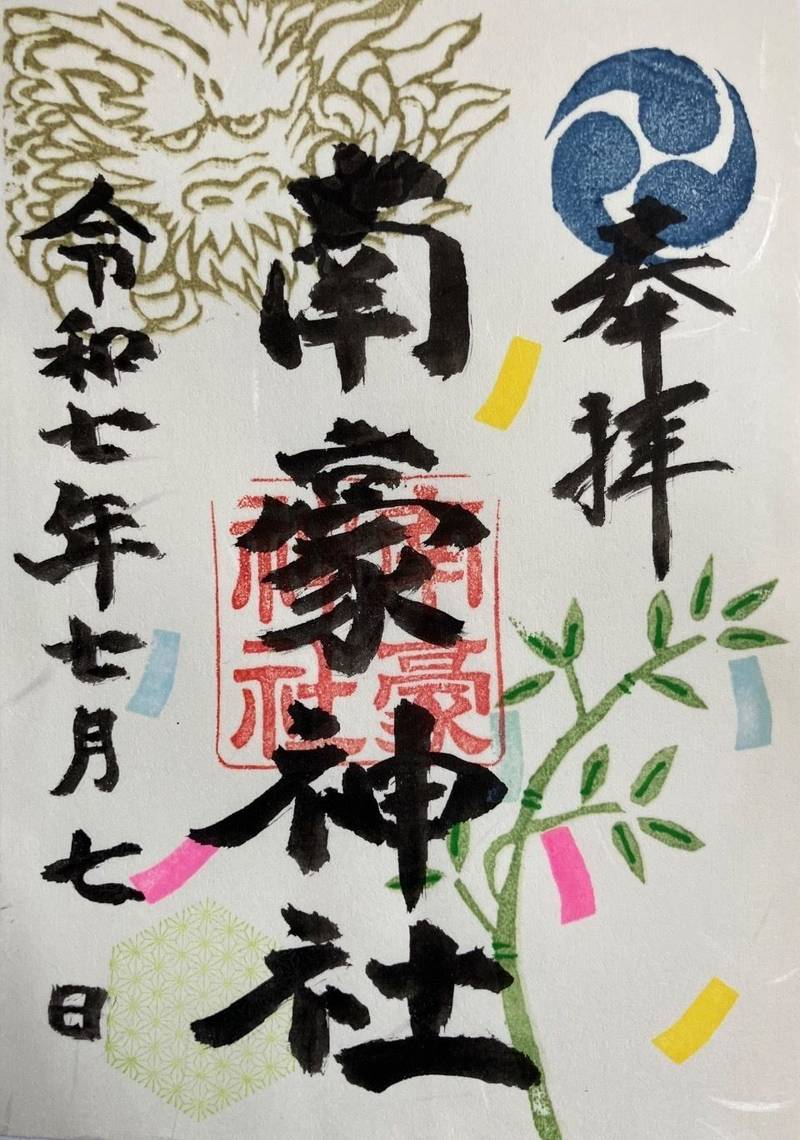 奉拝
南豪神社
南豪
神社
令和七年七月七日